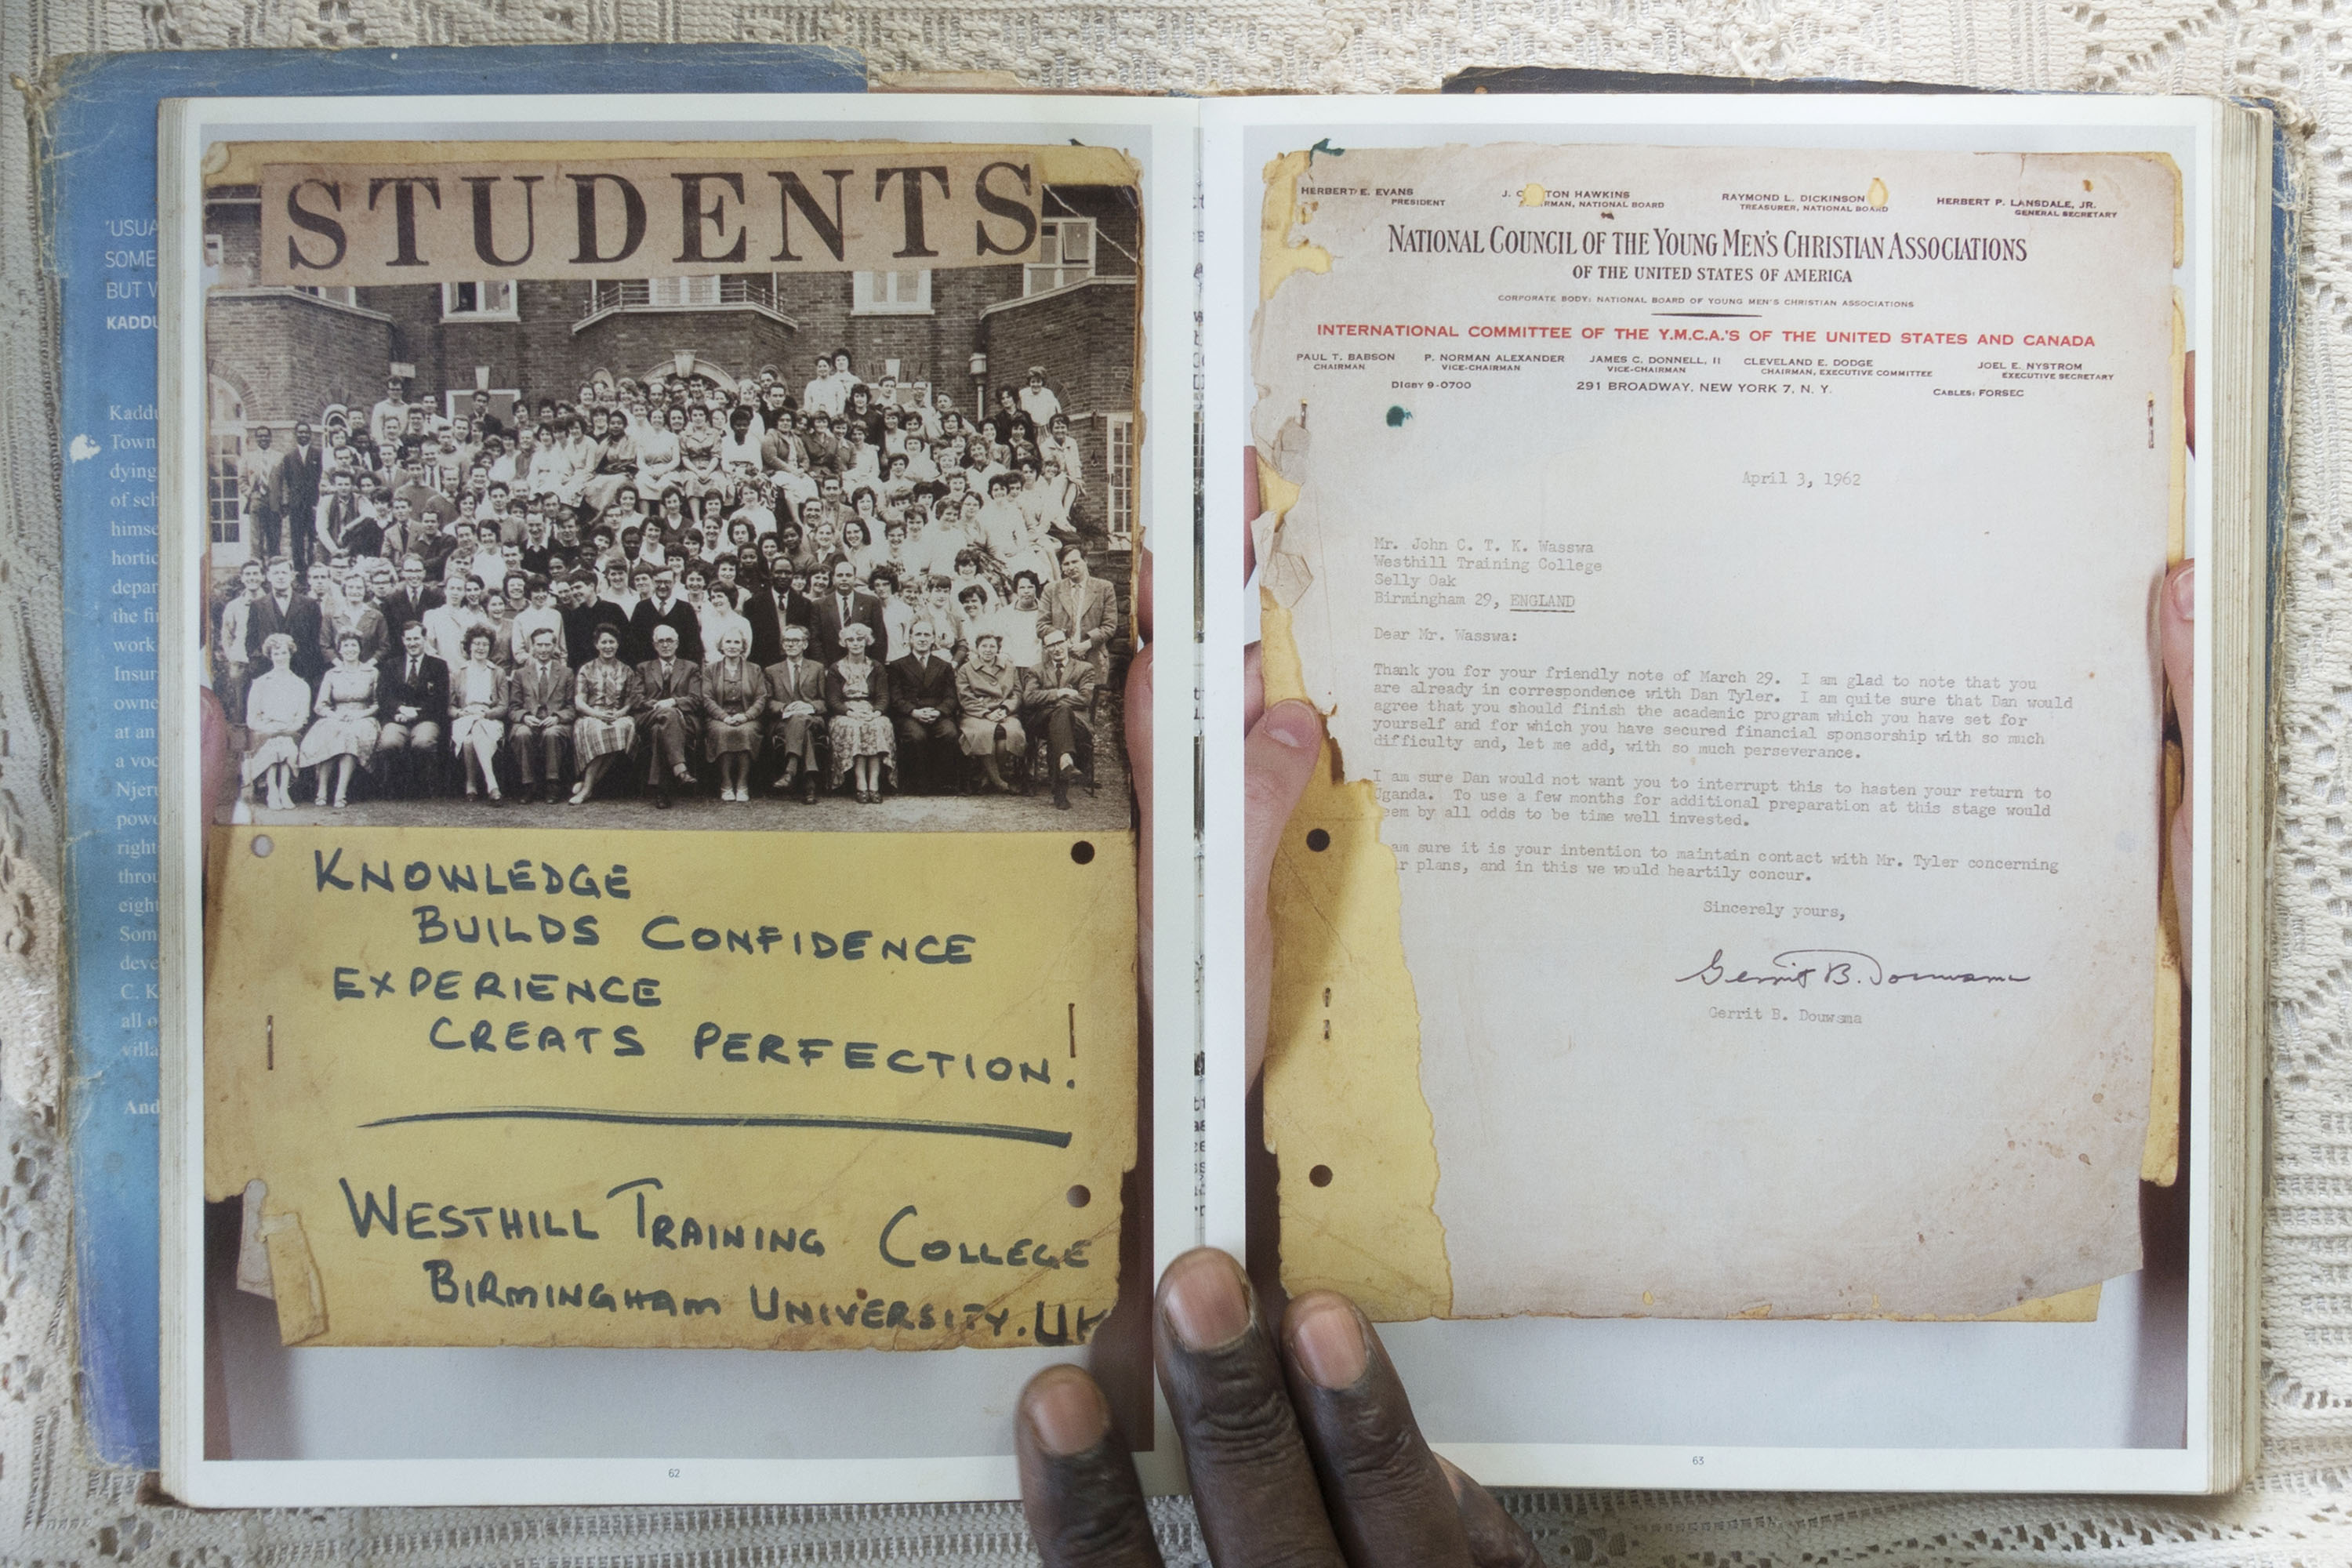 'USUA
SOME
BUT W
KADDU
Kaddu
Town
dying
of sch
himse
hortic
depar
the fi
work.
Insur
owne
at an
a voc
Njeru
powe
right
throu
eight
Som
deve
C. K
all o
villa
And
STUDENTS
KNOWLEDGE
BUILDS CONFIDENCE
EXPERIENCE
CREATS PERFECTION.
WESTHILL TRAINING COLLEGE
BIRMINGHAM UNIVERSITY. UK
62
HERBERT E. EVANS
PRESIDENT
J. C TON HAWKINS
RMAN, NATIONAL BOARD
RAYMOND L. DICKINSON
TREASURER, NATIONAL BOARD
HERBERT P. LANSDALE, JR.
GENERAL SECRETARY
NATIONAL COUNCIL OF THE YOUNG MEN'S CHRISTIAN ASSOCIATIONS
OF THE UNITED STATES OF AMERICA
CORPORATE BODY: NATIONAL BOARD OF YOUNG MEN'S CHRISTIAN ASSOCIATIONS
INTERNATIONAL COMMITTEE OF THE Y.M.C.A.'S OF THE UNITED STATES AND CANADA
PAUL T. BABSON
CHAIRMAN
P. NORMAN ALEXANDER
VICE-CHAIRMAN
JAMES C. DONNELL, II
VICE-CHAIRMAN
CLEVELAND E. DODGE
CHAIRMAN, EXECUTIVE COMMITTEE
JOEL E. NYSTROM
EXECUTIVE SECRETARY
DIGBY 9-0700
291 BROADWAY, NEW YORK 7, N. Y.
CABLES: FORSEC
April 3, 1962
Mr. John C. T. K. Wasswa
Westhill Training College
Selly Oak
Birmingham 29, ENGLAND
Dear Mr. Wasswa:
Thank you for your friendly note of March 29. I am glad to note that you
are already in correspondence with Dan Tyler. I am quite sure that Dan would
agree that you should finish the academic program which you have set for
yourself and for which you have secured financial sponsorship with so much
difficulty and, let me add, with so much perseverance.
I am sure Dan would not want you to interrupt this to hasten your return to
Uganda. To use a few months for additional preparation at this stage would
eem by all odds to be time well invested.
am sure it is your intention to maintain contact with Mr. Tyler concerning
r plans, and in this we would heartily concur.
Sincerely yours,
Gerrit B. Douwsma
Gerrit B. Douwsma
63